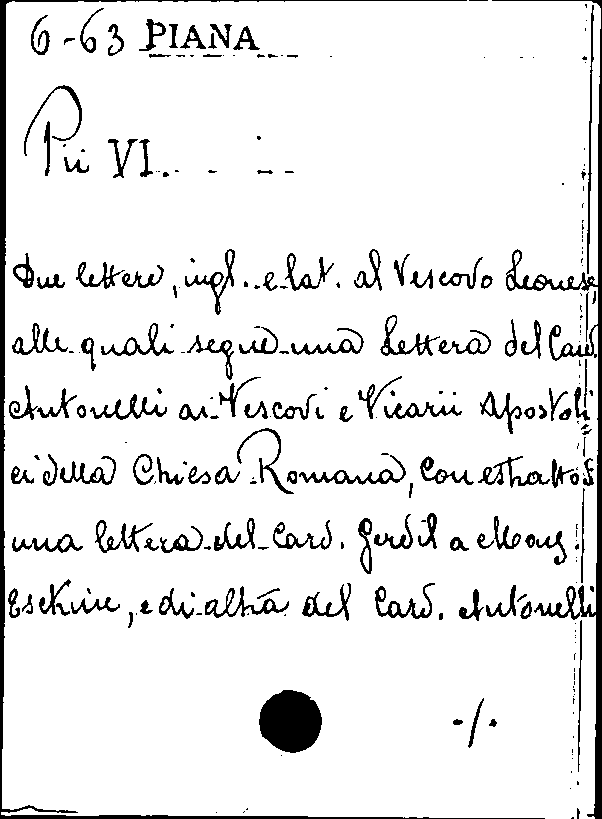 6-63 PIANA
Pii VI.
Due lettere, ingl. e lat. al Vescovo Leonese,
alle quali segue una Lettera del Card.
Antonelli ai Vescovi e Vicarii Apostoli
ci della Chiesa Romana, con estratto di
una lettera del Card. Gerdil a Mons.
Esckine, e di altra del Card. Antonelli
./.